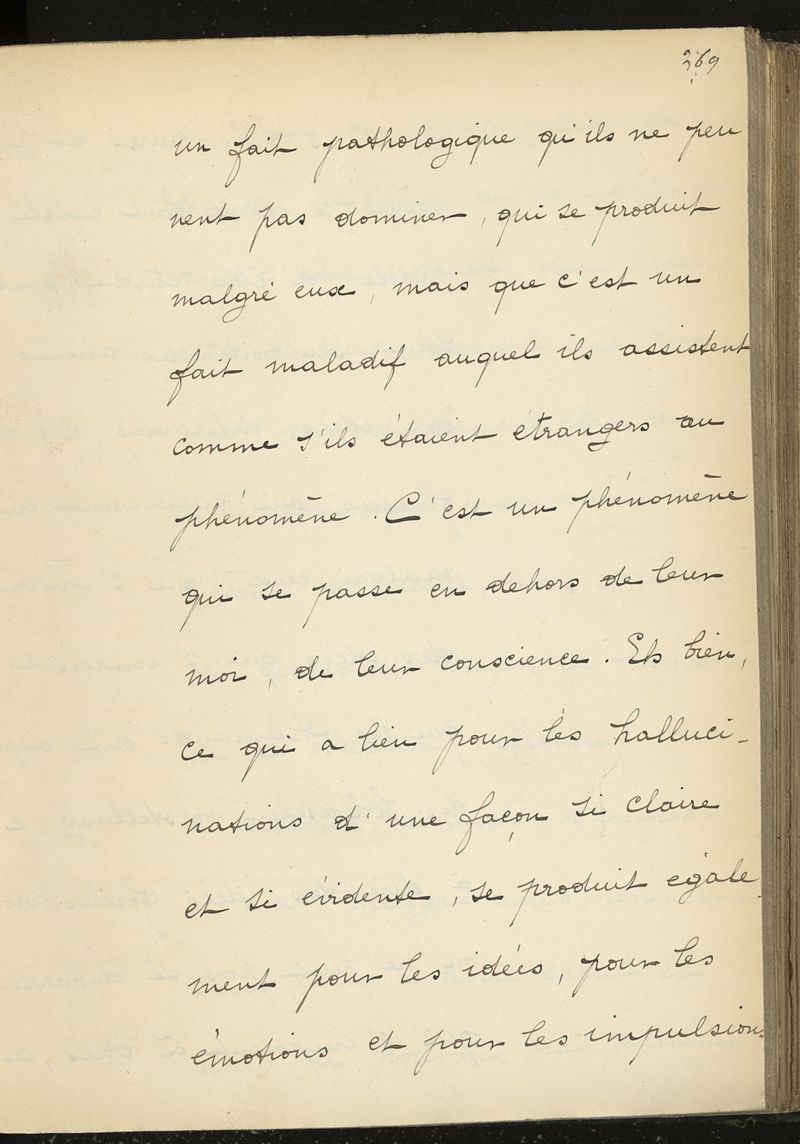 369
un fait pathologique qu'ils ne peu
vent pas dominer, qui se produit
malgré eux, mais que c'est un
fait maladif auquel ils assistent
comme s'ils étaient étrangers au
phénomène. C'est un phénomène
qui se passe en dehors de leur
moi, de leur conscience. Eh bien,
ce qui a lieu pour les halluci-
nations d'une façon si claire
et si évidente, se produit égale
ment pour les idées, pour les
émotions et pour les impulsions